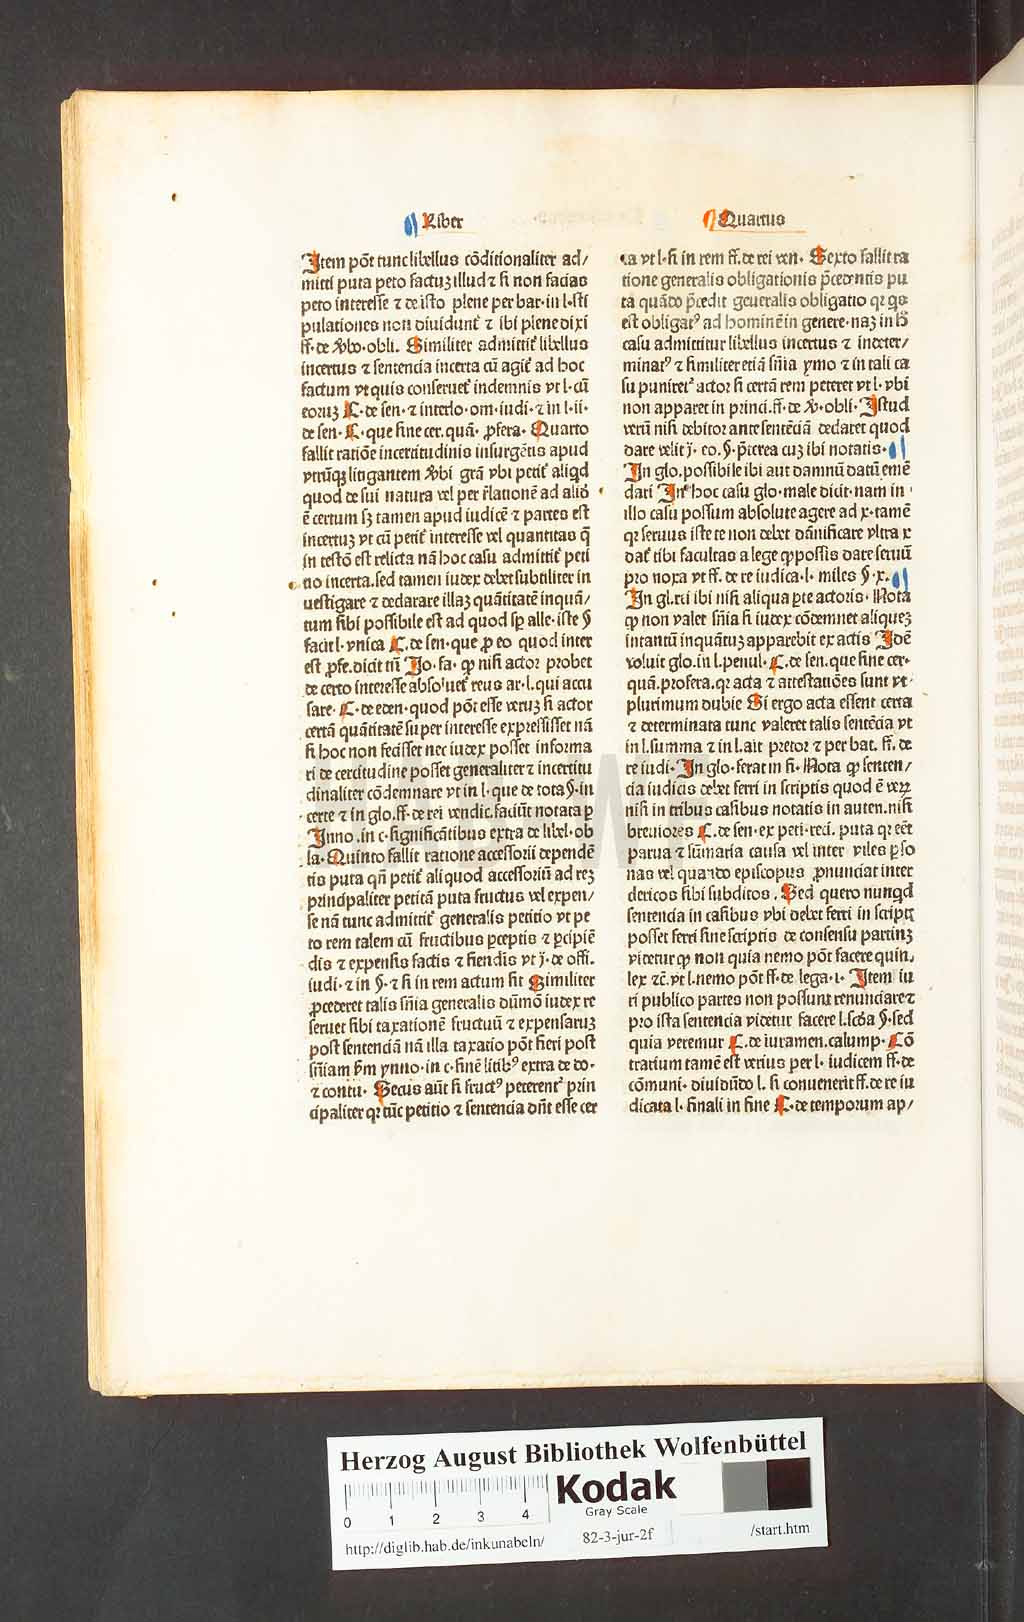 Liber Quartus
Item pōt tunc libellus cōditionaliter ad/
mitti puta peto factuꝫ illud ⁊ si non facias
peto interesse ⁊ de isto plene per bar· in l· sti
pulationes non diuidunt̄ ⁊ ibi plene dixi
ff· de v̄bo· obli. Similiter admittit̄ libellus
incertus ⁊ sentencia incerta cū agit̄ ad hoc
factum vt quis conseruet̄ indemnis vt l· cū
eoruꝫ C· de sen· ⁊ interlo· om· iudi· ⁊ in l· ii·
de sen· C· que sine cer. quā· ꝓfera· Quarto
fallit ratiōe incertitudinis insurgētis apud
vtrūqꝫ litigantem v̄bi grā vbi petit̄ aliqd
quod de sui natura vel per r̄lationē ad aliō
ē certum sꝫ tamen apud iudicē ⁊ partes est
incertuꝫ vt cū petit̄ interesse vel quantitas q̄
in testō est relicta nā hoc casu admittit̄ peti
tio incerta. sed tamen iudex debet subtiliter in
uestigare ⁊ declarare illaꝫ quātitatē inquā/
tum sibi possibile est ad quod sꝑ alle· iste §
facit l· vnica C· de sen· que ꝓ eo quod inter
est ꝓfe. dicit tn̄ Jo· fa· ꝙ nisi actor probet
de certo interesse absoluet̄ reus ar· l. qui accu
sare· C· de eden· quod pōt esse veruꝫ si actor
certā quātitatē super interesse expressisset nā
si hoc non fecisset nec iudex posset informa
ri de certitudine posset generaliter ⁊ incertitu
dinaliter cōdemnare vt in l· que de tota §· in
certe ⁊ in glo. ff· de rei vendic. faciūt notata ꝑ
Inno. in c· significātibus extra de libel· ob
la· Quinto fallit ratione accessorii dependē
tis puta qn̄ petit̄ aliquod accessoriū ad reꝫ
principaliter petitā puta fructus vel expen/
se nā tunc admittit̄ generalis petitio vt pe
to rem talem cū fructibus ꝑceptis ⁊ ꝑcipiē
dis ⁊ expensis factis ⁊ fiendis vt j· de offi.
iudi· ⁊ in §· ⁊ si in rem actum sit Similiter
ꝓcederet talis sn̄ia generalis dūmō iudex re
seruet sibi taxationē fructuū ⁊ expensaruꝫ
post sentenciā nā illa taxatio pōt fieri post
sn̄iam ẜm ynno· in c· finē litibꝰ extra de do·
⁊ contu· Secus aūt si fructꝰ peterent̄ prin
cipaliter qꝛ tūc petitio ⁊ sentencia dn̄t esse cer
ta vt l· si in rem ff. de rei ven· Sexto fallit ra
tione generalis obligationis p̄cedentis pu
ta quādo p̄cedit generalis obligatio qꝛ qs
est obligatꝰ ad hominē in genere· naꝫ in h̄
casu admittitur libellus incertus ⁊ indeter/
minatꝰ ⁊ similiter etiā sn̄ia ymo ⁊ in tali ca
su puniret᷑ actor si certā rem peteret vt l· vbi
non apparet in princi. ff· de v̄· obli· Istud
verū nisi debitor ante sentēciā declaret quod
dare velit j̄· eo. §· p̄terea cuꝫ ibi notatis·
In glo. possibile ibi aut damnū datū emē
dari In hoc casu glo· male dicit· nam in
illo casu possum absolute agere ad x· tamē
qꝛ seruus iste te non debet dānificare vltra x
dat̄ tibi facultas a lege ꝙ possis dare seruū
pro noxa vt ff· de re iudica· l· miles §· x·
In gl. rei ibi nisi aliqua ꝑte actoris· Nota
ꝙ non valet sn̄ia si iudex cōdemnet aliqueꝫ
intantū inquātuꝫ apparebit ex actis Idē
voluit glo. in l. penul· C· de sen. que sine cer·
quā. profera. qꝛ acta ⁊ attestatiōes sunt vt
plurimum dubie Si ergo acta essent certa
⁊ determinata tunc valeret talis sentēcia vt
in l. summa ⁊ in l. ait pretor ⁊ per bat. ff. de
re iudi· In glo· ferat in fi· Nota ꝙ senten/
cia iudicis debet ferri in scriptis quod ē veꝝ
nisi in tribus casibus notatis in auten. nisi
breuiores C. de sen· ex peti· reci. puta qꝛ eēt
parua ⁊ sūmaria causa vel inter viles ꝑso
nas vel quando episcopus ꝓnunciat inter
clericos sibi subditos. Sed quero nunqd
sentencia in casibus vbi debet ferri in script
posset ferri sine scriptis de consensu partiuꝫ
videtur ꝙ non quia nemo pōt facere quin.
lex ⁊c̄. vt l. nemo pōt ff· de lega· i· Item iu
ri publico partes non possunt renunciare ⁊
pro ista sentencia videtur facere l. scd̄a §· sed
quia veremur C. de iuramen. calump· Cō
trarium tamē est verius per l· iudicem ff· de
cōmuni· diuidūdo l. si conuenerit ff. de re iu
dicata l· finali in fine C· de temporum ap/
Herzog August Bibliothek Wolfenbüttel
Kodak
Gray Scale
0 1 2 3 4
http://diglib.hab.de/inkunabeln/ 82-3-jur-2f /start.htm